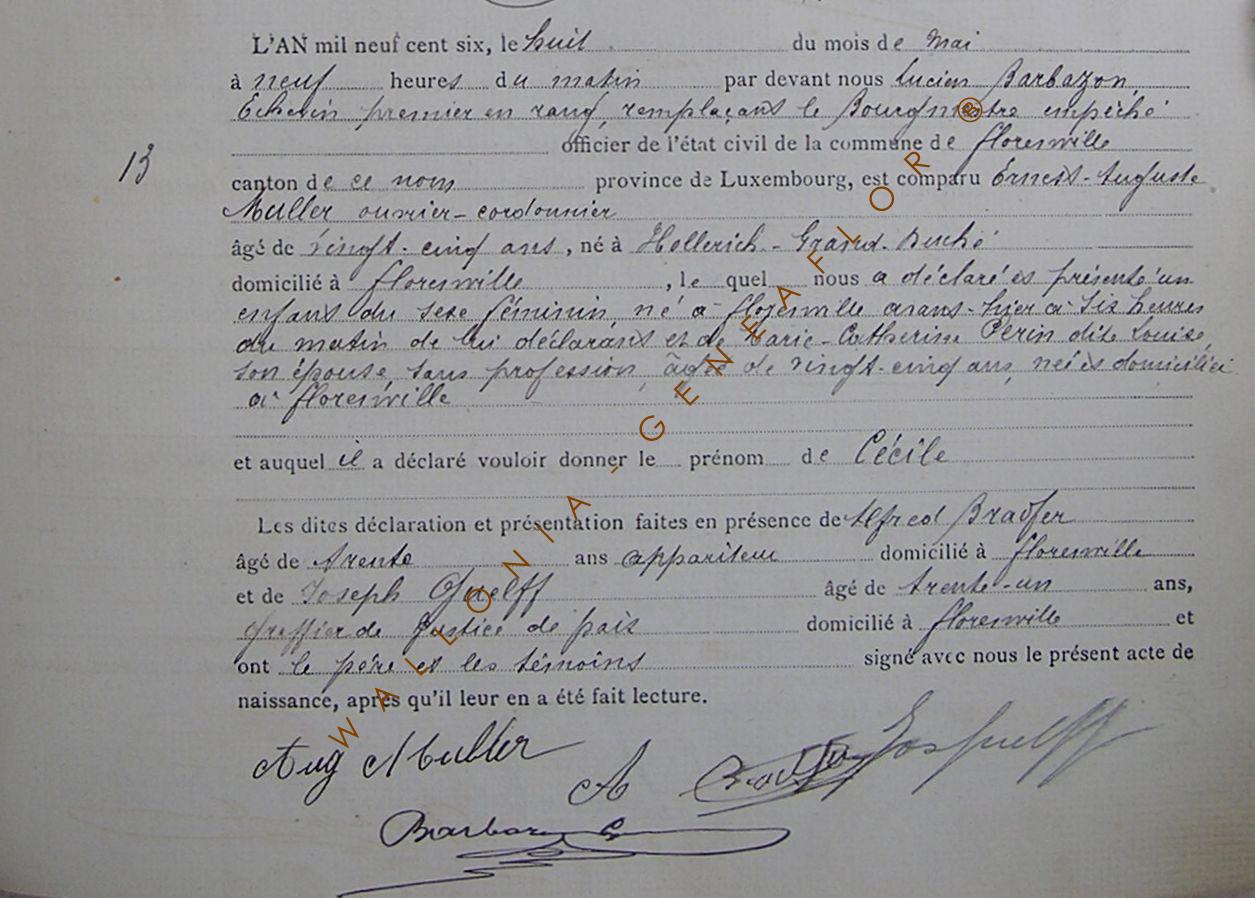 L'AN mil neuf cent six, le huit du mois de mai
à neuf heures du matin par devant nous Lucien Barbazon,
Echevin premier en rang, remplaçant le Bourgmestre empêché
officier de l'état civil de la commune de Florenville
13
canton de ce nom province de Luxembourg, est comparu Ernest-Auguste
Muller ouvrier-cordonnier
âgé de vingt-cinq ans, né à Hollerich-Grand-Duché
domicilié à Florenville, lequel nous a déclaré et présenté un
enfant du sexe féminin, né à Florenville avant-hier à six heures
du matin de lui déclarant et de Marie-Catherine Perin dite Louise,
son épouse, sans profession, âgée de vingt-cinq ans, née et domiciliée
à Florenville
et auquel il a déclaré vouloir donner le prénom de Cécile
Les dites déclaration et présentation faites en présence de Alfred
âgé de trente ans appariteur domicilié à Florenville
et de Joseph âgé de trente-un ans,
Greffier de Justice de paix domicilié à Florenville et
ont le père et les témoins signé avec nous le présent acte de
naissance, après qu'il leur en a été fait lecture.
Aug Muller
A
Barbazon
WALLONIA-GENEAFLOR®